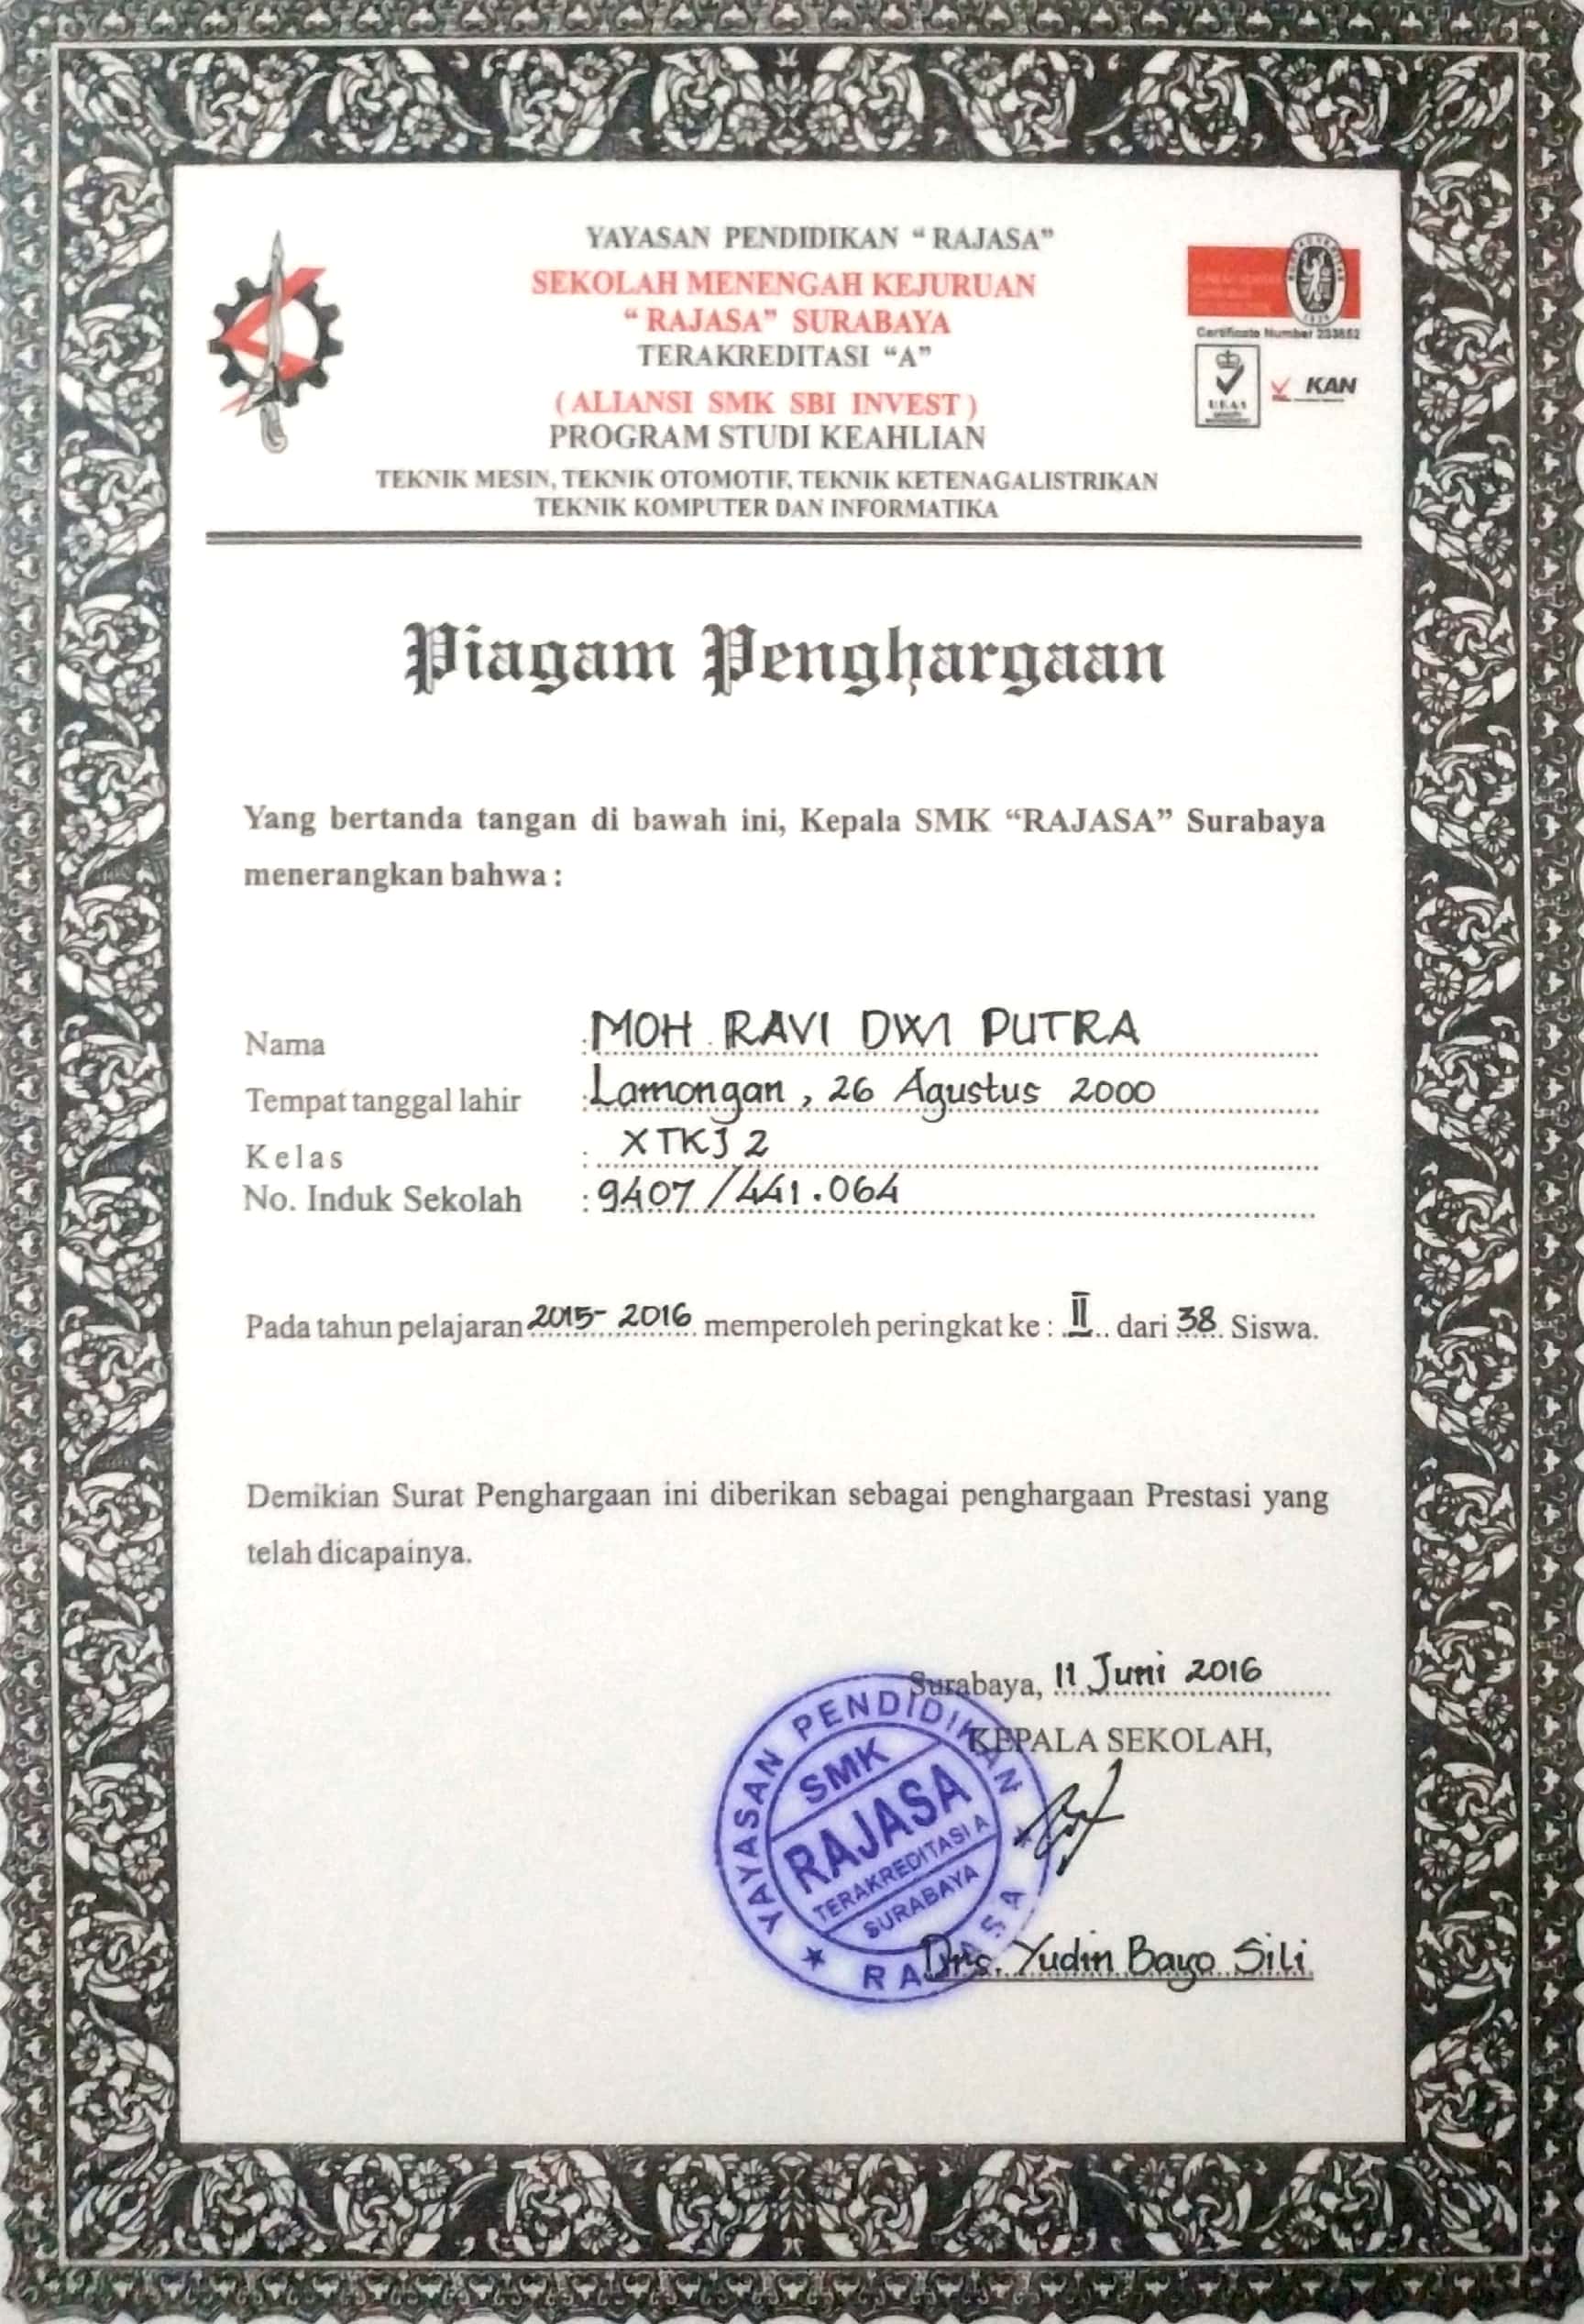 YAYASAN PENDIDIKAN “ RAJASA”
SEKOLAH MENENGAH KEJURUAN
“ RAJASA” SURABAYA
TERAKREDITASI “A”
( ALIANSI SMK SBI INVEST )
PROGRAM STUDI KEAHLIAN
TEKNIK MESIN, TEKNIK OTOMOTIF, TEKNIK KETENAGALISTRIKAN
TEKNIK KOMPUTER DAN INFORMATIKA
Certificate Number 233652
UKAS
KAN
Piagam Penghargaan
Yang bertanda tangan di bawah ini, Kepala SMK “RAJASA” Surabaya
menerangkan bahwa :
Nama : MOH RAVI DWI PUTRA
Tempat tanggal lahir : Lamongan , 26 Agustus 2000
Kelas : X TKJ 2
No. Induk Sekolah : 9407 / 441.064
Pada tahun pelajaran 2015- 2016 memperoleh peringkat ke : II dari 38 Siswa.
Demikian Surat Penghargaan ini diberikan sebagai penghargaan Prestasi yang
telah dicapainya.
Surabaya, 11 Juni 2016
KEPALA SEKOLAH,
YAYASAN PENDIDIKAN
RAJASA
SMK
RAJASA
TERAKREDITASI A
SURABAYA
Drs. Yudin Bayo Sili